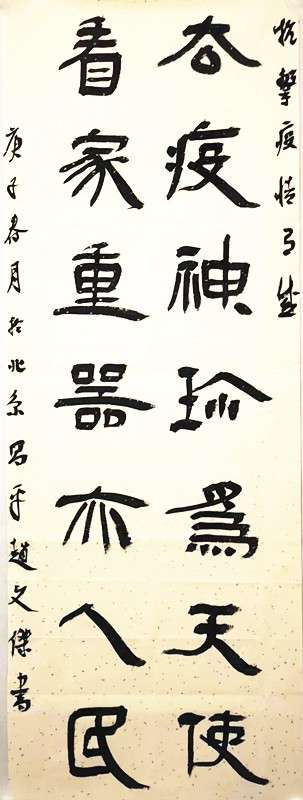 抗擊疫情有感
去疫神珍為天使
看家重器亦人民
庚子春月於北京昌平趙文傑書